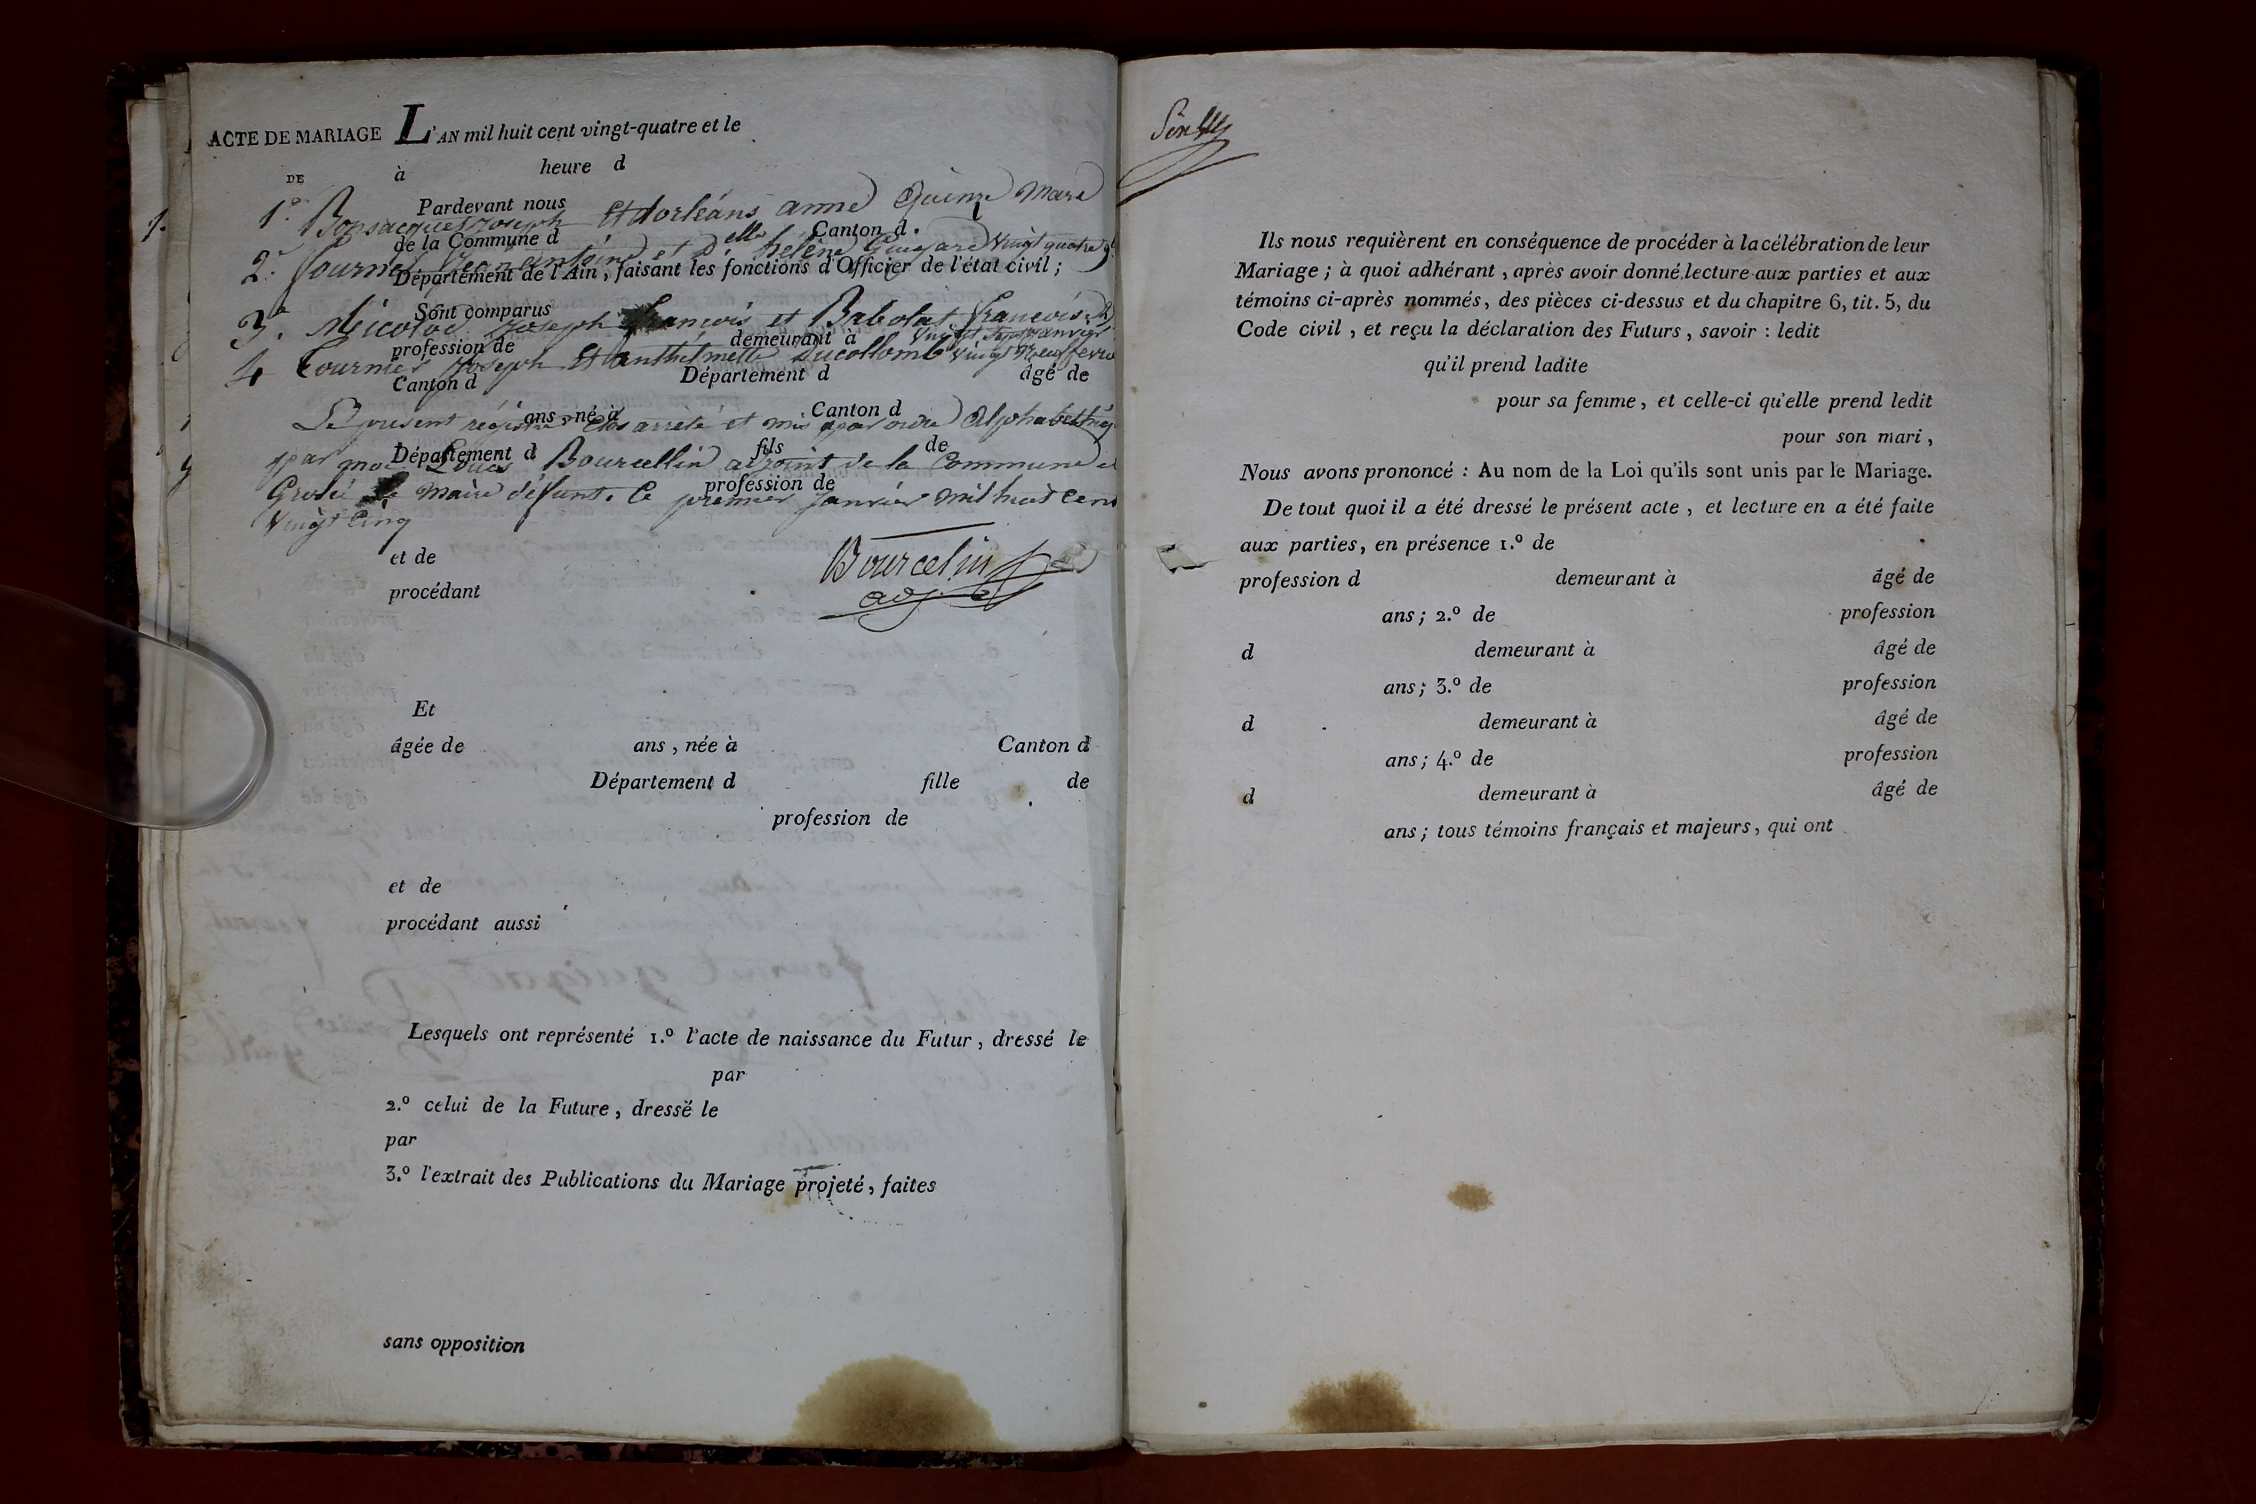 ACTE DE MARIAGE L'AN mil huit cent vingt-quatre et le
DE à heure d
Pardevant nous
1.º Bonsacquet joseph et dorléans anne Quinze Mars
de la Commune d Canton d
2.º fournier et d.elle hélène Vingt quatre
Département de l'Ain, faisant les fonctions d'Officier de l'état civil ;
Sont comparus
3.º joseph françois et françoise
profession de demeurant à
4 fournier joseph et anthelmette Ducollomb Vingt neuf
Canton d Département d âgé de
ans, né à Canton d
Le present régistre Clos arrêté et mis par ordre Alphabéthiq
Département d fils de
par moi Bourcellin adjoint de la Commune d
profession de
maire défunt. Ce premier janvier mil huit Cent
Vingt Cinq
et de
Bourcelin
adj.
procédant
Et
âgée de ans, née à Canton d
Département d fille de
profession de
et de
procédant aussi
Lesquels ont représenté 1.º l'acte de naissance du Futur, dressé le
par
2.º celui de la Future, dressé le
par
3.º l'extrait des Publications du Mariage projeté, faites
sans opposition
Ils nous requièrent en conséquence de procéder à la célébration de leur
Mariage ; à quoi adhérant, après avoir donné lecture aux parties et aux
témoins ci-après nommés, des pièces ci-dessus et du chapitre 6, tit. 5, du
Code civil, et reçu la déclaration des Futurs, savoir : ledit
qu'il prend ladite
pour sa femme, et celle-ci qu'elle prend ledit
pour son mari,
Nous avons prononcé : Au nom de la Loi qu'ils sont unis par le Mariage.
De tout quoi il a été dressé le présent acte, et lecture en a été faite
aux parties, en présence 1.º de
profession d demeurant à âgé de
ans ; 2.º de profession
d demeurant à âgé de
ans ; 3.º de profession
d demeurant à âgé de
ans ; 4.º de profession
d demeurant à âgé de
ans ; tous témoins français et majeurs, qui ont